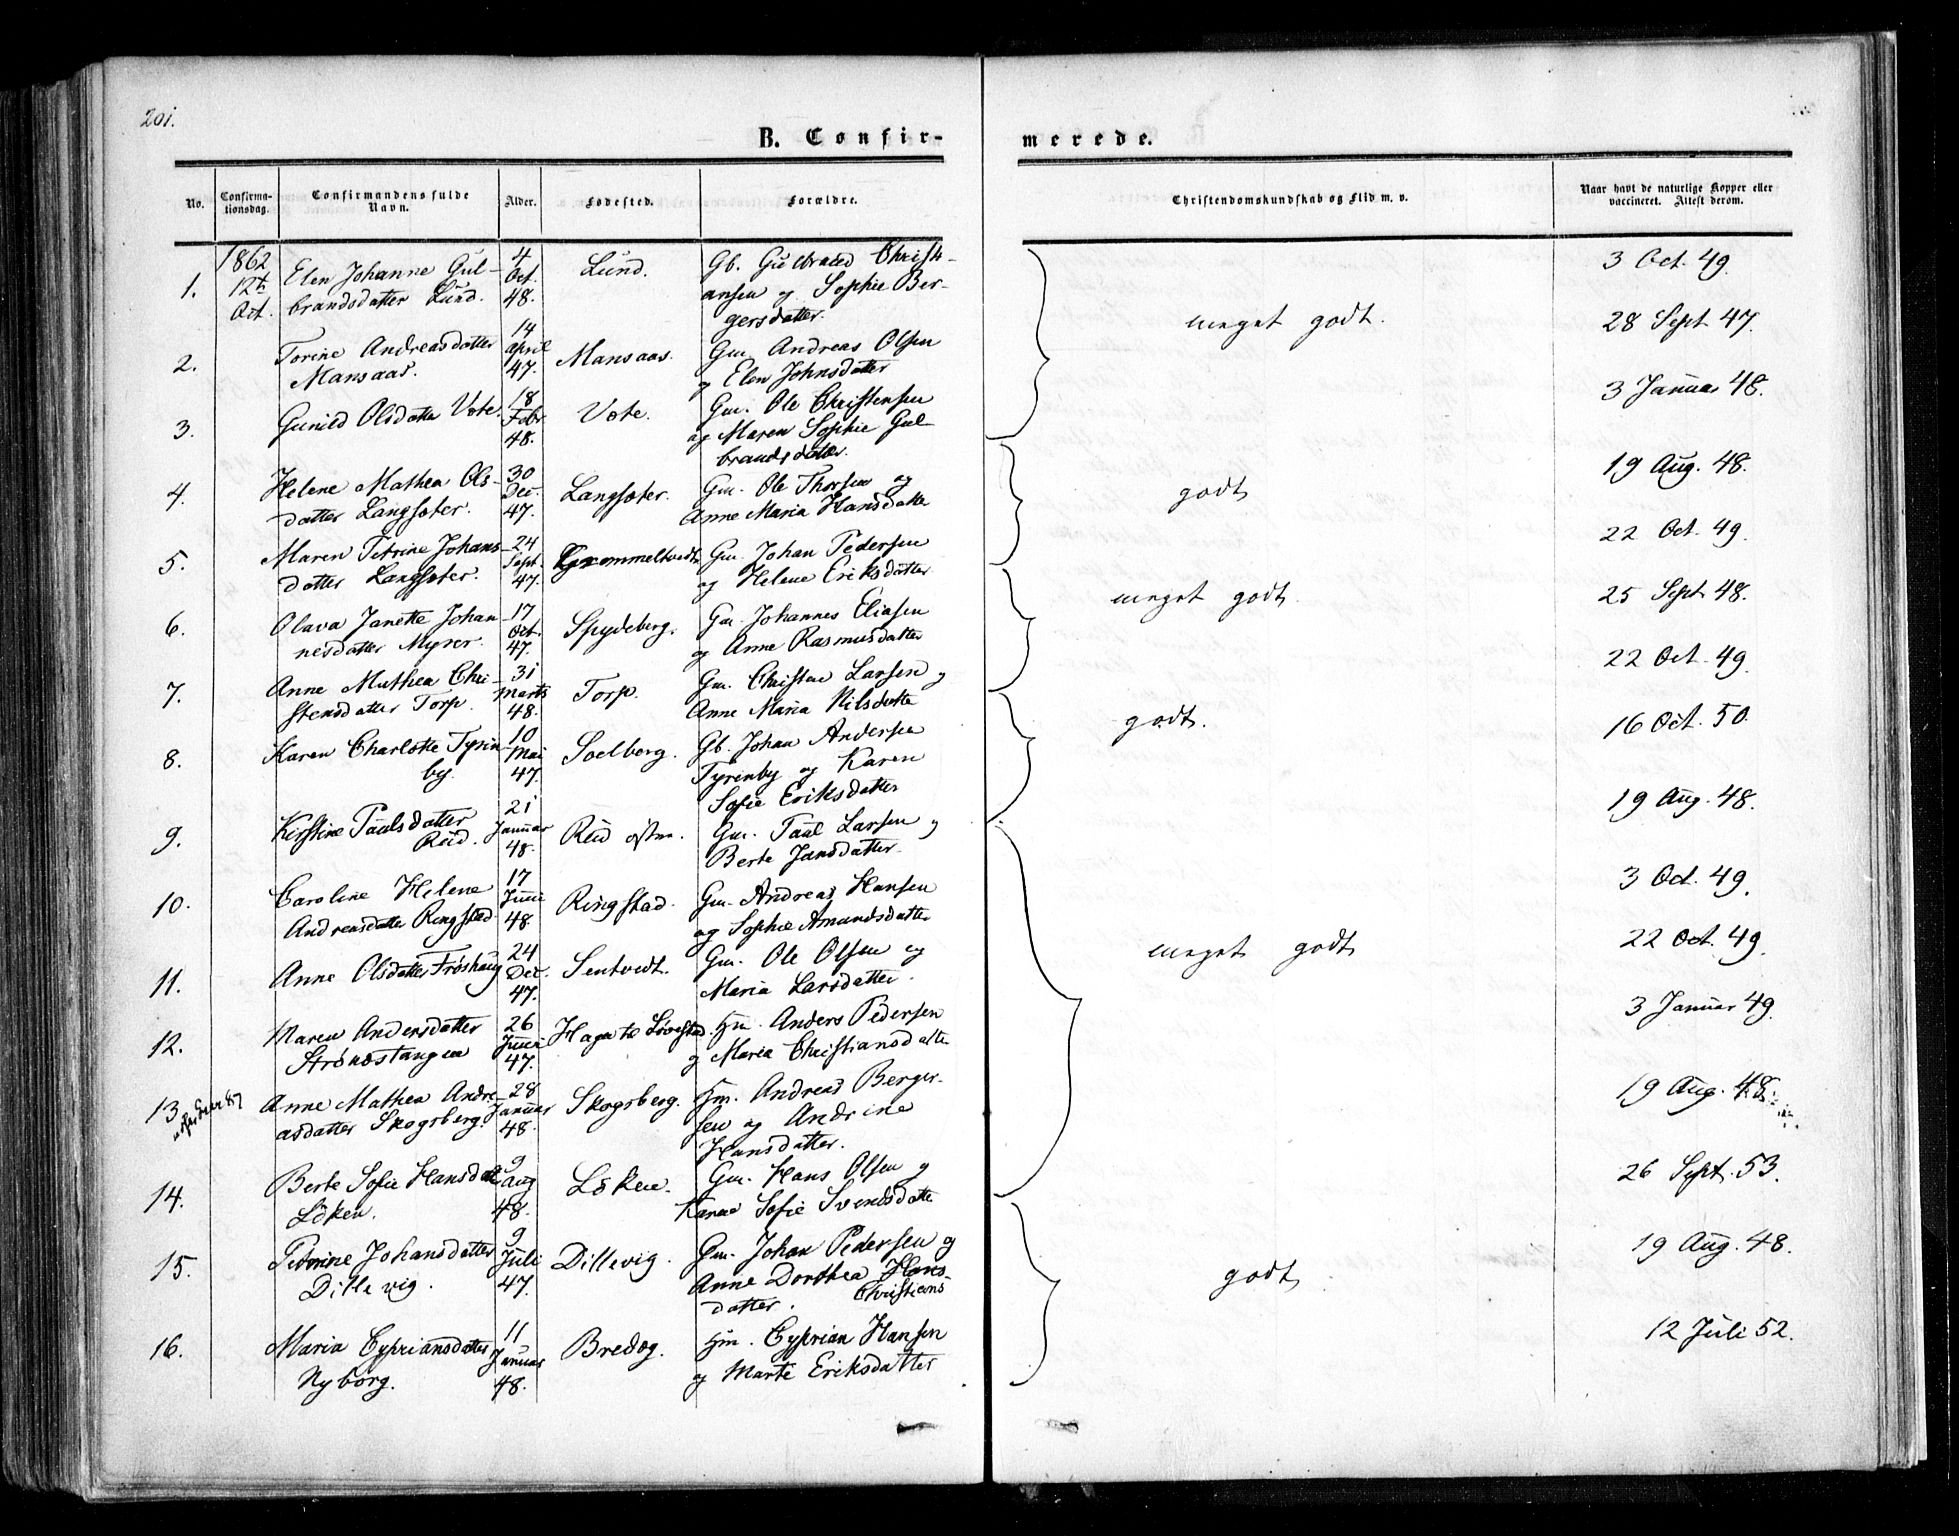 201.
B. Confir-
merede.
No.
Confirma-
tionsdag.
Confirmandens fulde
Navn.
Alder.
Fødested.
Forældre.
Christendomskundskab og Flid m. v.
Naar havt de naturlige Kopper eller
vaccineret. Attest derom.
1862
12te
Oct.
1.
Elen Johanne Gul-
brandsdatter Lund.
4
Oct.
48.
Lund.
Gb. Gulbrand Christi-
ansen og Sophie Ber-
gersdatter.
3 Oct. 49.
2.
Torine Andreasdatter
Mansaas.
14
April
47.
Mansaas.
Gm. Andreas Olsen
og Elen Johnsdatter
meget godt.
28 Sept 47.
3.
Gunild Olsdatter Vote.
18
Febr
48.
Vote.
Gm. Ole Christensen
og Maren Sophie Gul-
brandsdatter.
3 Januar 48.
4.
Helene Mathea Ols-
datter Langsæter.
30
Dec.
47.
Langsæter.
Gm. Ole Thorsen og
Anne Maria Hansdatter
godt
19 Aug. 48.
5.
Maren Petrine Johans-
datter Langsæter.
24
Sept.
47.
Grommeltvedt
Gm. Johan Pedersen
og Helene Eriksdatter
22 Oct. 49.
6.
Olava Janette Johan-
nesdatter Myrer.
17
Oct.
47.
Spydeberg.
Gm. Johannes Eliasen
og Anne Rasmusdatter
meget godt.
25 Sept 48.
7.
Anne Mathea Chri-
stensdatter Torp.
31
Marts
48.
Torp.
Gm. Christen Larsen og
Anne Maria Nilsdatter
22 Oct. 49.
8.
Karen Charlotte Tyrin-
by.
10
Mai
47.
Soelberg.
Gb. Johan Andersen
Tyrinby og Karen
Sofie Eriksdatter
godt.
16 Oct. 50.
9.
Kirstine Paulsdatter
Rud.
21
Januar
48.
Rud østre.
Gm. Paul Larsen og
Berte Jansdatter.
19 Aug. 48.
10.
Caroline Helene
Andreasdatter Ringstad
17
Juni
48.
Ringstad.
Gm. Andreas Hansen
og Sophie Amundsdatter
3 Oct. 49.
11.
Anne Olsdatter Frøshaug
24
Dec.
47.
Sentvedt.
Gm. Ole Olsen og
Maria Larsdatter.
meget godt
22 Oct. 49.
12.
Maren Andersdatter
Strønæstangen
26
Juni
47.
Hagen til Løvestad.
Hm. Anders Pedersen
og Maria Christiansdatter
3 Januar 49.
13
Anne Mathea Andre-
asdatter Skogsberg.
28
Januar
48.
Skogsberg.
Hm. Andreas Berger-
sen og Andrine
Hansdatter.
19 Aug. 48.
14.
Berte Sofie Hansdatter
Løken.
9
Aug
48.
Løken.
Gm. Hans Olsen og
Karen Sofie Svendsdatter
26 Sept. 53.
15.
Petrine Johansdatter
Dillevig.
9
Juli
47.
Dillevig.
Gm. Johan Pedersen og
Anne Dorthea Hans-
Christians-
datter.
godt
19 Aug. 48.
16.
Maria Cypriansdatter
Nyborg.
11
Januar
48.
Bredøg.
Hm. Cyprian Hansen
og Marte Eriksdatter
12 Juli 52.